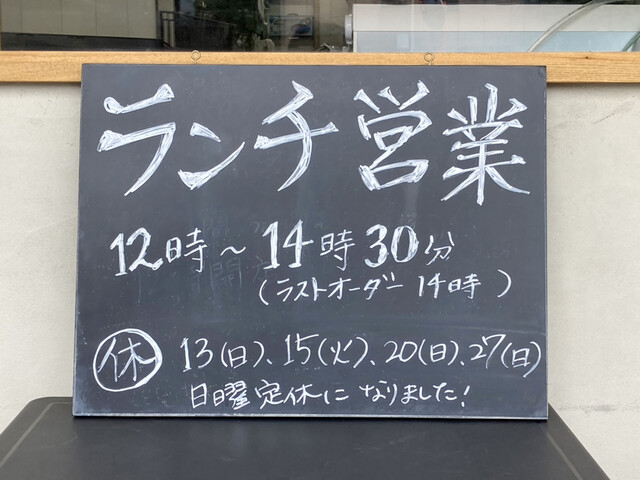 ランチ営業
12時～14時30分
(ラストオーダー 14時)
休 13(日)、15(火)、20(日)、27(日)
日曜定休になりました!